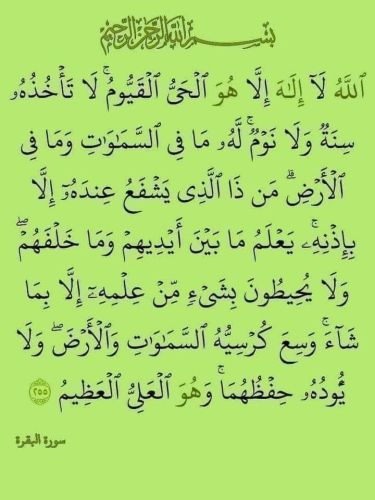 بِسْمِ ٱللَّهِ ٱلرَّحْمَٰنِ ٱلرَّحِيمِ
ٱللَّهُ لَآ إِلَٰهَ إِلَّا هُوَ ٱلْحَىُّ ٱلْقَيُّومُ ۚ لَا تَأْخُذُهُۥ
سِنَةٌ وَلَا نَوْمٌ ۚ لَّهُۥ مَا فِى ٱلسَّمَٰوَٰتِ وَمَا فِى
ٱلْأَرْضِ ۗ مَن ذَا ٱلَّذِى يَشْفَعُ عِندَهُۥٓ إِلَّا
بِإِذْنِهِۦ ۚ يَعْلَمُ مَا بَيْنَ أَيْدِيهِمْ وَمَا خَلْفَهُمْ ۖ
وَلَا يُحِيطُونَ بِشَىْءٍ مِّنْ عِلْمِهِۦٓ إِلَّا بِمَا
شَآءَ ۚ وَسِعَ كُرْسِيُّهُ ٱلسَّمَٰوَٰتِ وَٱلْأَرْضَ ۖ وَلَا
يَـُٔودُهُۥ حِفْظُهُمَا ۚ وَهُوَ ٱلْعَلِىُّ ٱلْعَظِيمُ ٢٥٥
سورة البقرة